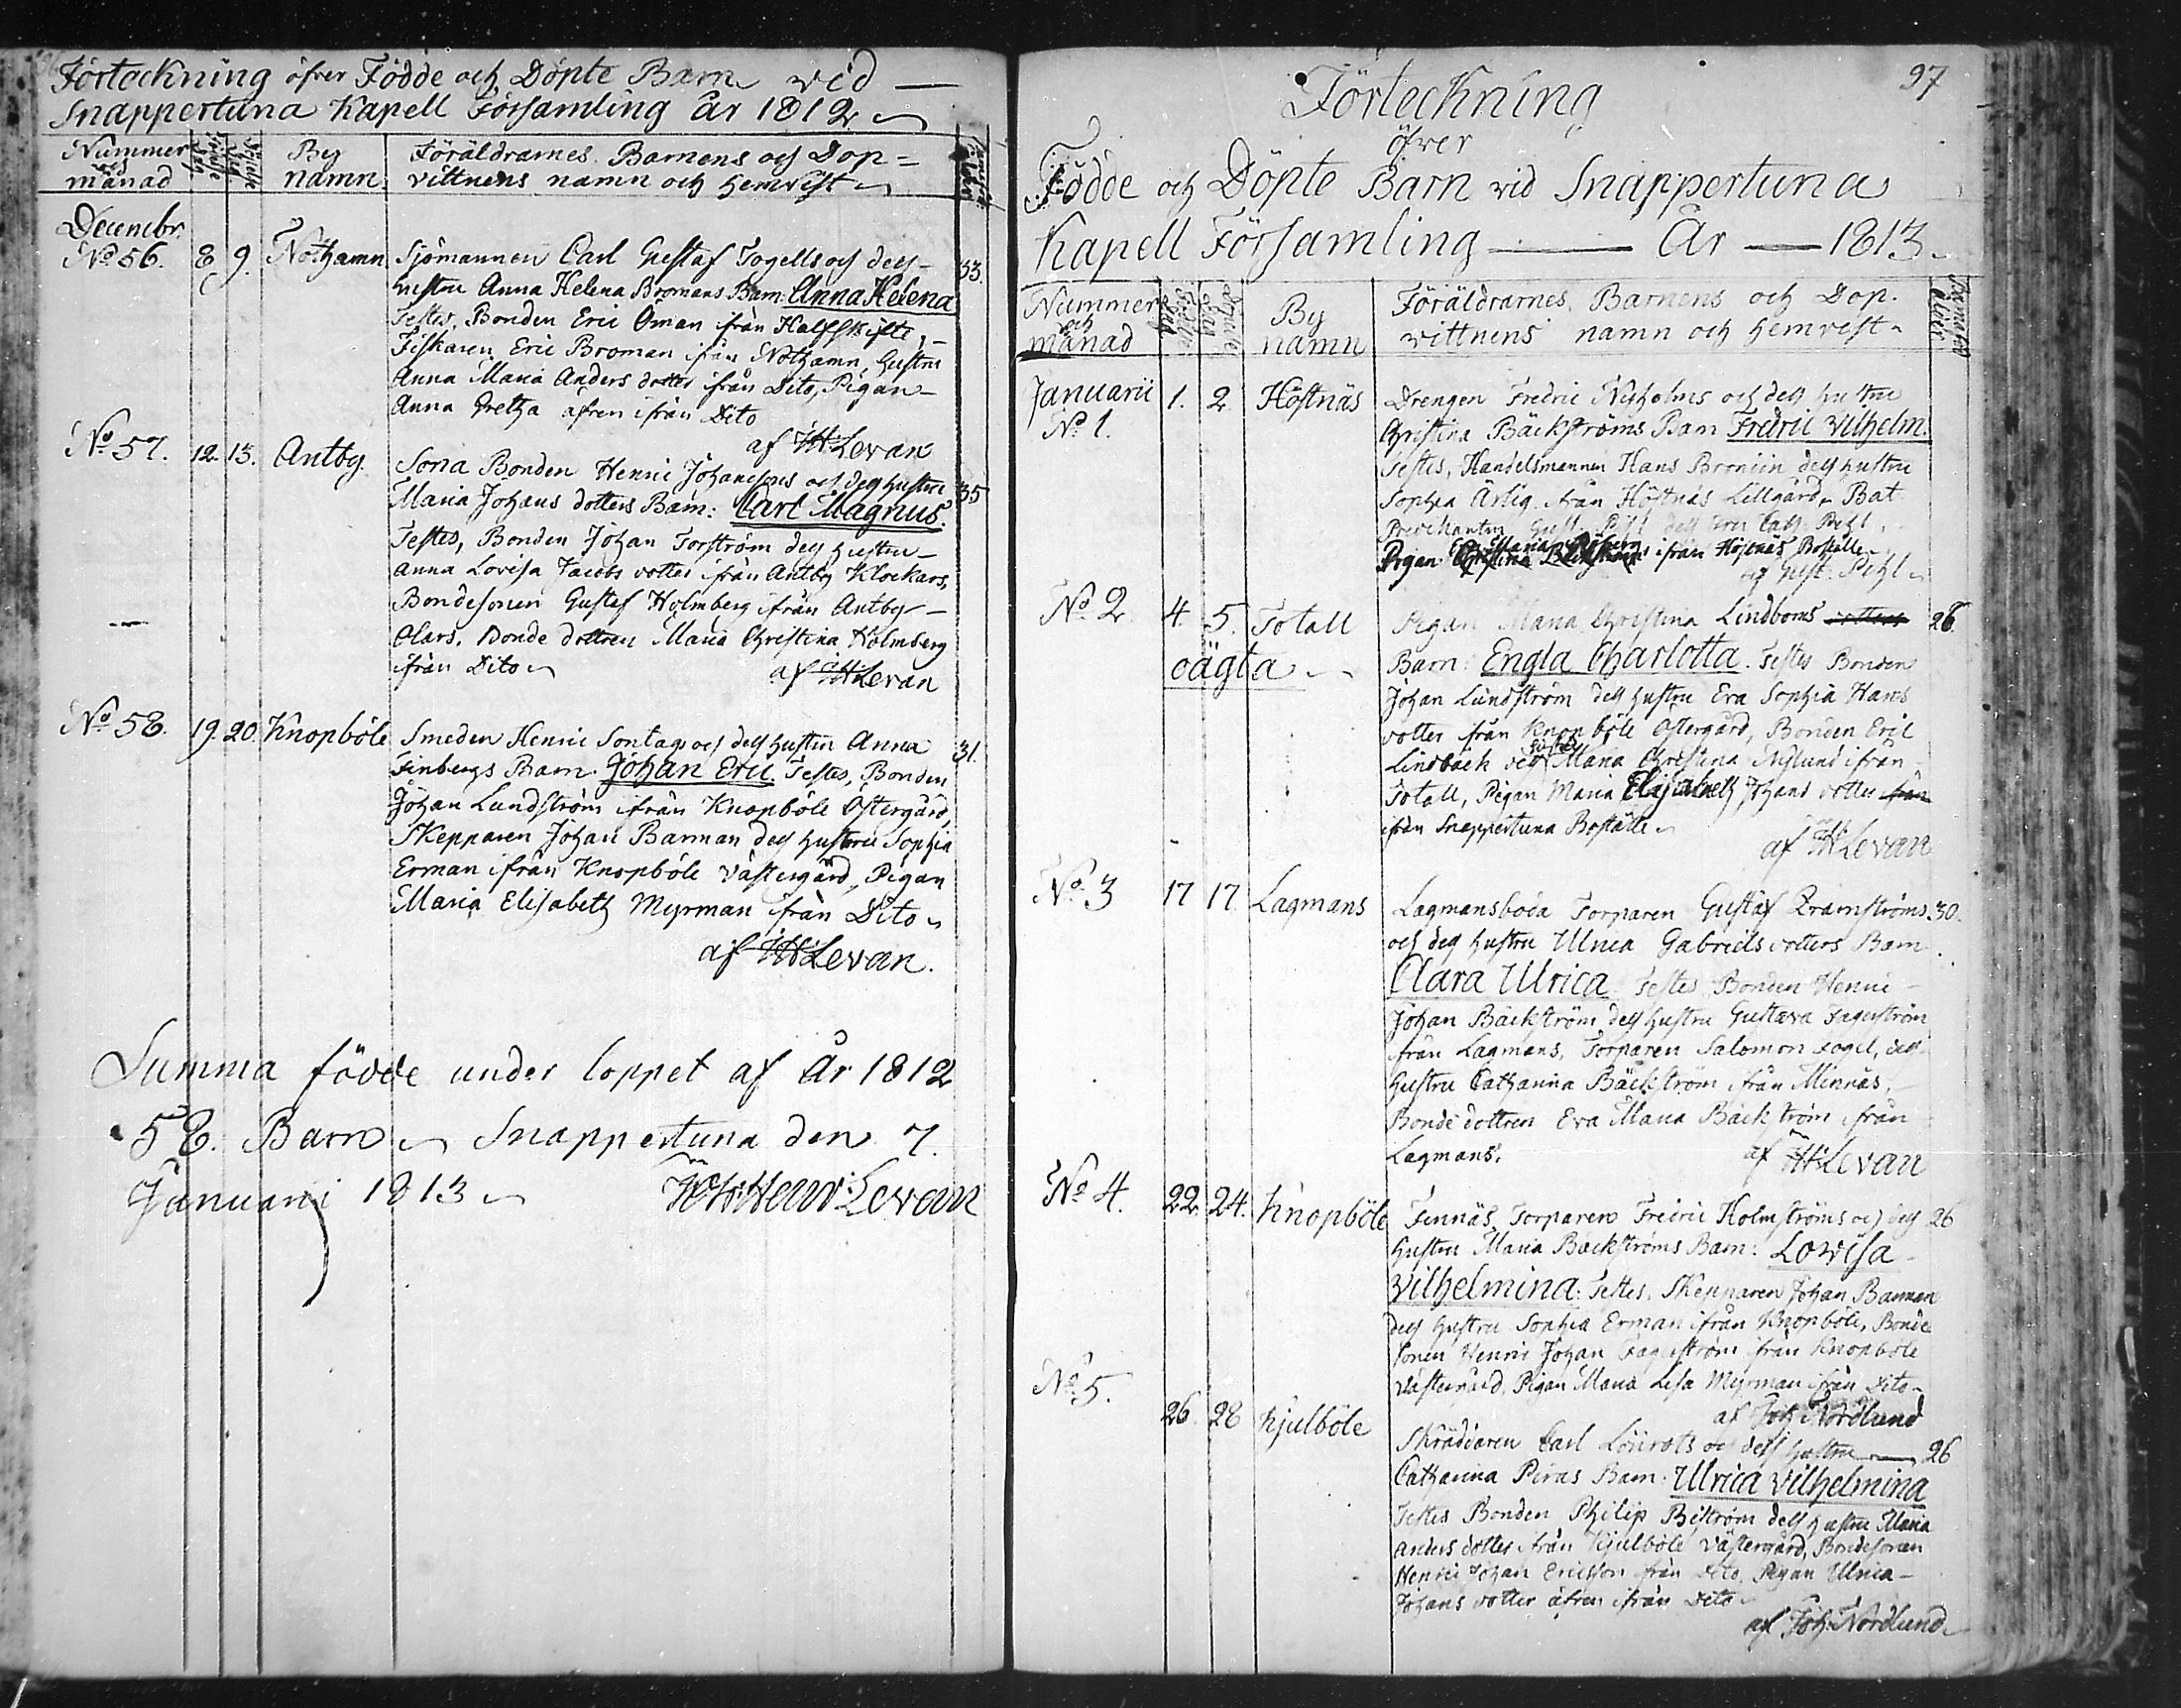 Förteckning öfver Födde och Döpte Barn vid
Snappertuna Kapell Församling År 1812
Nummer och månad
Födde dag
Döpte dag
By namn
Föräldrarnes Barnens och Dop-
vittnens namn och hemvist
Decembr.
No 56. 8 9. Nothamn Sjömannen Carl Gustaf Fogells och dess 33.
hustru Anna Helena Bromans Barn: Anna Helena
Testes, Bonden Eric Öman från Halfskifte,
Fiskaren Eric Broman ifrån Nothamn, hustru
Anna Maria Anders dotter ifrån Dito, Pigan
Anna Gretha äfven ifrån Dito
af JHLevan
No 57. 12. 13. Antby. Bonden Henric Johanssons och dess hustru 35
Maria Johans dotters Barn: Carl Magnus.
Testes, Bonden Johan Forström dess hustru
Anna Lovisa Jacobs dotter ifrån Antby Klockars,
Bondesonen Gustaf Holmberg ifrån Antby
Olars, Bonde dottren Maria Christina Holmberg
ifrån Dito
af JHLevan
No 58. 19. 20. Knopböle Smeden Henric Sontags och dess hustru Anna 31.
Finbergs Barn. Johan Eric. Testes, Bonden
Johan Lundström ifrån Knopböle Östergård,
Skepparen Johan Barman dess hustru Sophia
Erman ifrån Knopböle Västergård, Pigan
Maria Elisabeth Myrman ifrån Dito
af JHLevan.
Summa födde under loppet af År 1812
58. Barn Snappertuna den 7.
Januarii 1813 Joh: Henr: Levan
97
Förteckning
öfver
Födde och Döpte Barn vid Snappertuna
Kapell Församling År 1813
Nummer och månad
Födde dag
Döpte dag
By namn
Föräldrarnes, Barnens och Dop-
vittnens namn och hemvist
Januarii
No 1. 1. 2 Höstnäs Drengen Fredric Nyholms och dess hustru
Christina Bäckströms Barn Fredric Vilhelm.
Testes, Handelsmannen Hans dess hustru
Sophia Ärlig från Höstnäs Lillgård, Bat.
Predikanten Gust. Pihl dess Fru Cath. Pihl,
Pigan ifrån Höstnäs Boställe
af Gust. Pihl
No 2 4. 5. Totall Pigan Maria Christina Lindboms dotters 26.
oägta Barn: Engla Charlotta. Testes Bonden
Johan Lundström dess hustru Eva Sophia Hans
dotter från Knopböle Östergård, Bonden Eric
Lindbäck dess hustru Maria Christina Nylund ifrån
Totall, Pigan Maria Elisabeth Johans dotter från
ifrån Snappertuna Boställe
af JHLevan
No 3 17 17 Lagmans Lagmansboda Torparen Gustaf Bramströms 30.
och dess hustru Ulrica Gabriels dotters Barn
Clara Ulrica. Testes Bonden Henric
Johan Bäckström dess hustru Gustava Fagerström
från Lagmans, Torparen Salomon Fogel, dess
hustru Catharina Bäckström ifrån Minnäs,
Bonde dottren Eva Maria Bäckström ifrån
Lagmans.
af JHLevan
No 4. 22. 24. Knopböle Finnäs Torparen Fredric Holmströms och dess 26
hustru Maria Bäckströms Barn: Lovisa
Vilhelmina: Testes, Skepparen Johan Barman
dess hustru Sophia Erman ifrån Knopböle, Bonde
sonen Henric Johan Fagerström ifrån Knopböle
Västergård, Pigan Maria Lisa Myrman ifrån Dito
af Joh: Nordlund
No 5. 26 28 Kjulböle Skräddaren Carl Lönrots och dess hustru 26
Catharina Piras Barn: Ulrica Vilhelmina
Testes Bonden Philip Biström dess hustru Maria
Anders dotter ifrån Kjulböle Västergård, Bondesonen
Henric Johan Ericsson från dito, Pigan Ulrica
Johans dotter äfven ifrån dito
af Joh: Nordlund